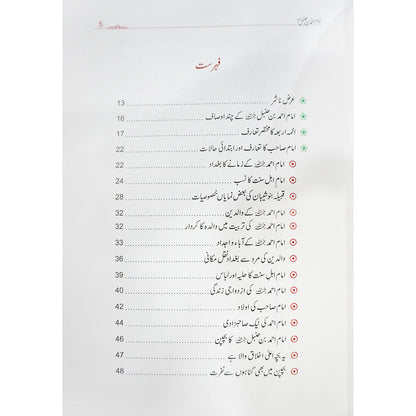 5
فہرست
عرض ناشر 13
امام احمد بن حنبل رحمہ اللہ کے چند اوصاف 16
ائمہ اربعہ کا مختصر تعارف 17
امام صاحب کا تعارف اور ابتدائی حالات 22
امام احمد رحمہ اللہ کے زمانے کا بغداد 22
امام اہل سنت کا نسب 24
قبیلہ بنو شیبان کی بعض نمایاں خصوصیات 28
امام احمد رحمہ اللہ کے والدین 32
امام احمد رحمہ اللہ کی تربیت میں والدہ کا کردار 32
امام احمد رحمہ اللہ کے آباء و اجداد 33
والدین کی مرو سے بغداد نقل مکانی 36
امام اہل سنت کا حلیہ اور لباس 39
امام احمد رحمہ اللہ کی ازدواجی زندگی 40
امام صاحب کی اولاد 42
امام احمد کی نیک صاحبزادی 44
امام احمد بن حنبل رحمہ اللہ کا بچپن 46
یہ بچہ اعلیٰ اخلاق والا ہے 47
بچپن میں بھی گناہوں سے نفرت 48